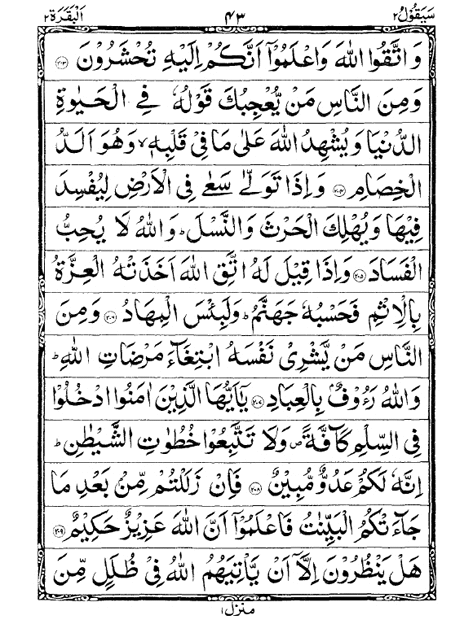 سَيَقُوْلُ ٢ ٤٣ اَلْبَقَرَة ٢
وَ اتَّقُوا اللهَ وَ اعْلَمُوْۤا اَنَّكُمْ اِلَيْهِ تُحْشَرُوْنَ ﴿٢٠٣﴾
وَ مِنَ النَّاسِ مَنْ يُّعْجِبُكَ قَوْلُهٗ فِي الْحَيٰوةِ
الدُّنْيَا وَ يُشْهِدُ اللهَ عَلٰى مَا فِيْ قَلْبِهٖ ۙ وَ هُوَ اَلَدُّ
الْخِصَامِ ﴿٢٠٤﴾ وَ اِذَا تَوَلّٰى سَعٰى فِي الْاَرْضِ لِيُفْسِدَ
فِيْهَا وَ يُهْلِكَ الْحَرْثَ وَ النَّسْلَ ؕ وَ اللهُ لَا يُحِبُّ
الْفَسَادَ ﴿٢٠٥﴾ وَ اِذَا قِيْلَ لَهُ اتَّقِ اللهَ اَخَذَتْهُ الْعِزَّةُ
بِالْاِثْمِ فَحَسْبُهٗ جَهَنَّمُ ؕ وَ لَبِئْسَ الْمِهَادُ ﴿٢٠٦﴾ وَ مِنَ
النَّاسِ مَنْ يَّشْرِيْ نَفْسَهُ ابْتِغَآءَ مَرْضَاتِ اللهِ ؕ
وَ اللهُ رَءُوْفٌۢ بِالْعِبَادِ ﴿٢٠٧﴾ يٰۤاَيُّهَا الَّذِيْنَ اٰمَنُوا ادْخُلُوْا
فِي السِّلْمِ كَآفَّةً ۪ وَ لَا تَتَّبِعُوْا خُطُوٰتِ الشَّيْطٰنِ ؕ
اِنَّهٗ لَكُمْ عَدُوٌّ مُّبِيْنٌ ﴿٢٠٨﴾ فَاِنْ زَلَلْتُمْ مِّنْۢ بَعْدِ مَا
جَآءَتْكُمُ الْبَيِّنٰتُ فَاعْلَمُوْۤا اَنَّ اللهَ عَزِيْزٌ حَكِيْمٌ ﴿٢٠٩﴾
هَلْ يَنْظُرُوْنَ اِلَّاۤ اَنْ يَّاْتِيَهُمُ اللهُ فِيْ ظُلَلٍ مِّنَ
منزل ١